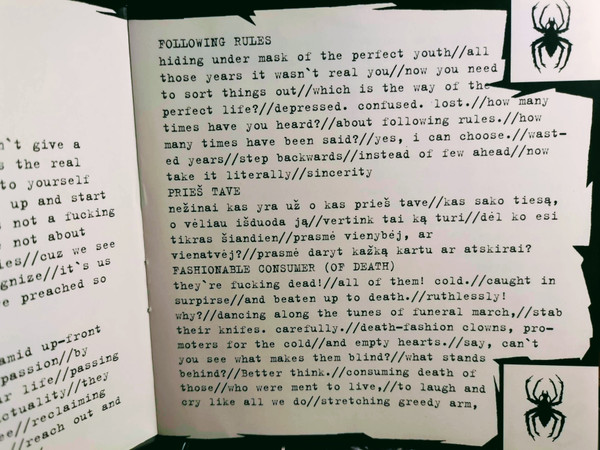 n`t give a
s the real
to yourself
up and start
not a fucking
not about
ies//cuz we see
gnize//it`s us
e preached so
amid up-front
passion//by
r life//passing
ctuality//they
ee//reclaiming
//reach out and
FOLLOWING RULES
hiding under mask of the perfect youth//all
those years it wasn`t real you//now you need
to sort things out//which is the way of the
perfect life?//depressed. confused. lost.//how many
times have you heard?//about following rules.//how
many times have been said?//yes, i can choose.//wast-
ed years//step backwards//instead of few ahead//now
take it literally//sincerity
PRIEŠ TAVE
nežinai kas yra už o kas prieš tave//kas sako tiesą,
o vėliau išduoda ją//vertink tai ką turi//dėl ko esi
tikras šiandien//prasmė vienybėj, ar
vienatvėj?//prasmė daryt kažką kartu ar atskirai?
FASHIONABLE CONSUMER (OF DEATH)
they`re fucking dead!//all of them! cold.//caught in
surpirse//and beaten up to death.//ruthlessly!
why?//dancing along the tunes of funeral march,//stab
their knifes. carefully.//death-fashion clowns, pro-
moters for the cold//and empty hearts.//say, can`t
you see what makes them blind?//what stands
behind?//Better think.//consuming death of
those//who were ment to live,//to laugh and
cry like all we do//stretching greedy arm,